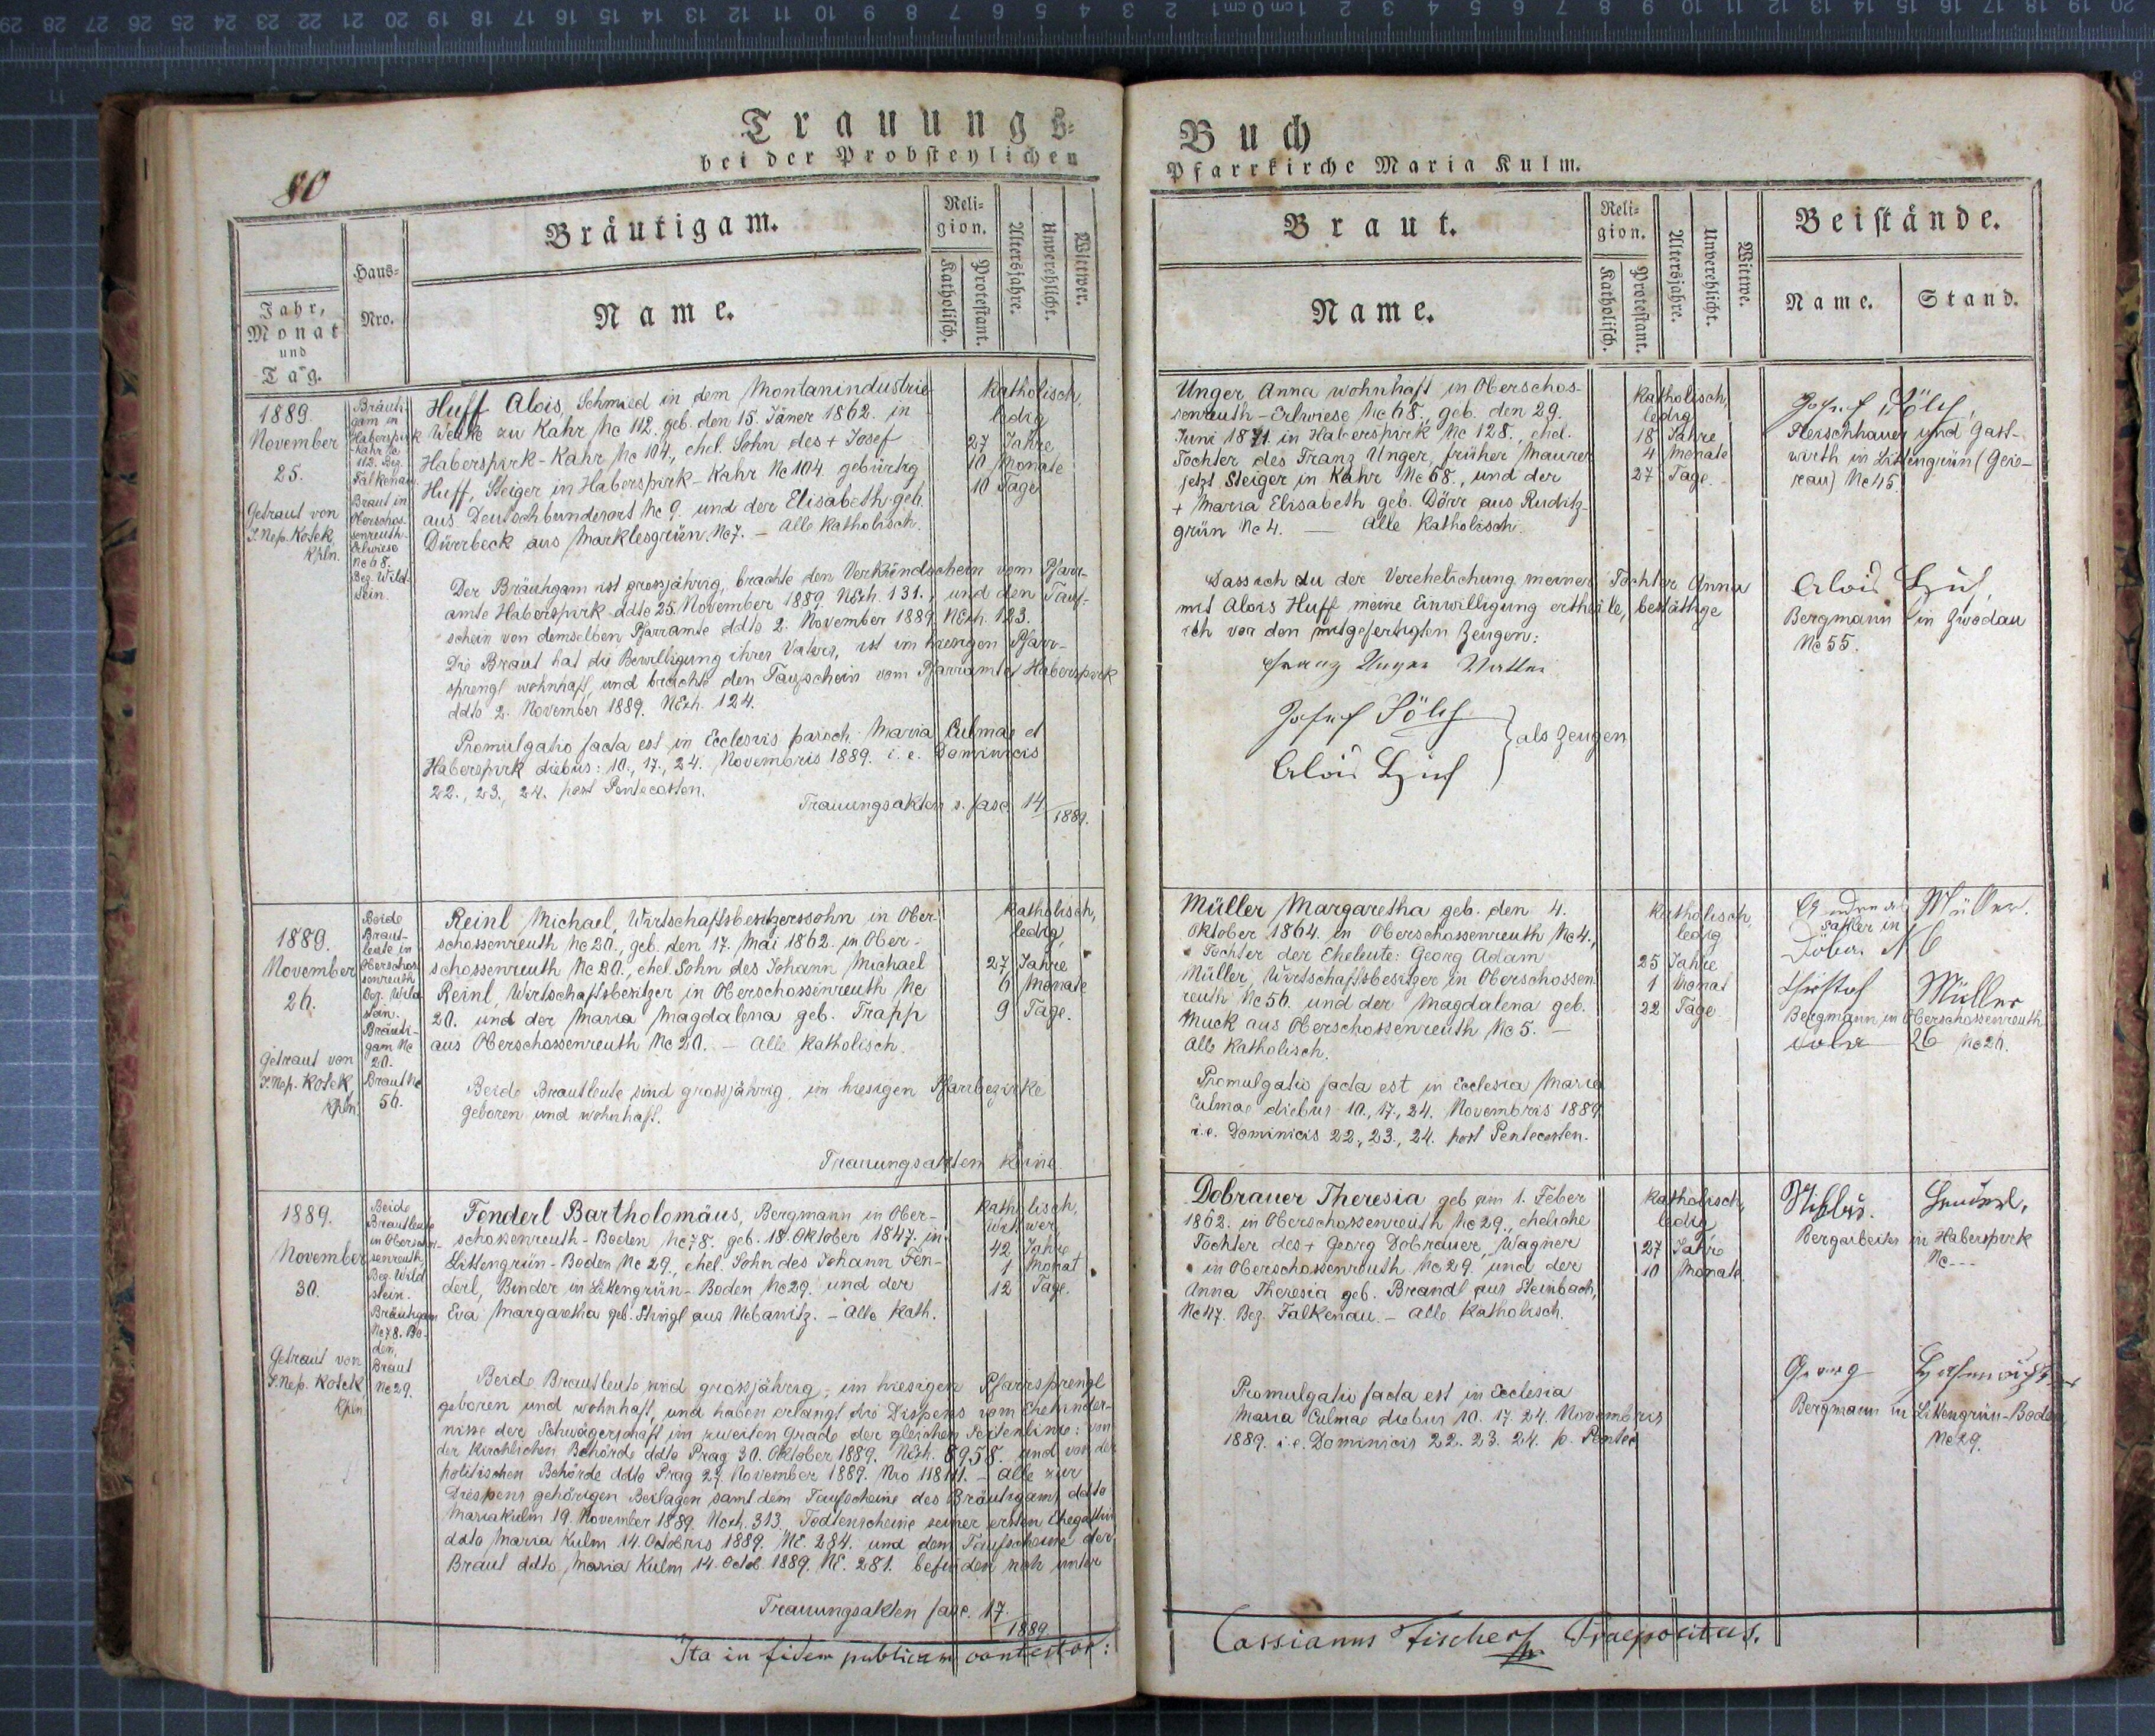 80
Trauungs=
bei der Probsteylichen
Jahr,
Monat
und
Tag.
Haus=
Nro.
Bräutigam.
Name.
Reli=
gion.
Katholisch.
Protestant.
Altersjahre.
Unverehlicht.
Wittwer.
1889.
November
25.
Getraut von
J. Nep. Kotek
Kpln.
Bräuti-
gam in
Haberspirk
-Kahr Nc
112. Bez.
Falkenau.
Braut in
Oberschos-
senreuth-
Erlwiese
Nc 68.
Bez. Wild-
stein.
Huff Alois, Schmied in dem Montanindustrie
Werke zu Kahr Nc 112. geb. den 15. Jäner 1862. in
Haberspirk-Kahr Nc 104., ehel. Sohn des + Josef
Huff, Steiger in Haberspirk-Kahr Nc 104. gebürtig
aus Deutschbundesort Nc 9. und der Elisabeth geb.
Dürrbeck aus Marklesgrün Nc 7. – Alle Katholisch.
Katholisch,
ledig
27 Jahre
10 Monate
10 Tage
Der Bräutigam ist grossjährig, brachte den Verkündschein vom Pfarr-
amte Haberspirk ddto 25. November 1889. NExh. 131., und den Tauf-
schein von demselben Pfarramte ddto 2. November 1889. NExh. 123.
Die Braut hat die Bewilligung ihres Vaters, ist im hiesigen Pfarr-
sprengl wohnhaft, und brachte den Taufschein vom Pfarramte Haberspirk
ddto 2. November 1889. NExh. 124.
Promulgatio facta est in Ecclesiis paroch. Maria Culmae et
Haberspirk diebus: 10., 17., 24. Novembris 1889. i. e. Dominicis
22., 23., 24. post Pentecosten.
Trauungsakten s. fasc. 14
1889.
1889.
November
26.
Getraut von
J. Nep. Kotek
Kpln.
Beide
Braut-
leute in
Oberschos-
senreuth
Bez. Wild-
stein.
Bräuti-
gam Nc
20.
Braut Nc
56.
Reinl Michael, Wirtschaftsbesitzerssohn in Ober-
schossenreuth Nc 20., geb. den 17. Mai 1862. in Ober-
schossenreuth Nc 20., ehel. Sohn des Johann Michael
Reinl, Wirtschaftsbesitzer in Oberschossenreuth Nc
20. und der Maria Magdalena geb. Trapp
aus Oberschossenreuth Nc 20. – Alle Katholisch.
Katholisch,
ledig
27 Jahre
6 Monate
9 Tage.
Beide Brautleute sind grossjährig, im hiesigen Pfarrbezirke
geboren und wohnhaft.
Trauungsakten keine.
1889.
November
30.
Getraut von
J. Nep. Kotek
Kpln
Beide
Brautleute
in Oberschos-
senreuth,
Bez. Wild
stein.
Bräutigam
Nc 78. Bo-
den,
Braut
Nc 29.
Fenderl Bartholomäus, Bergmann in Ober-
schossenreuth-Boden Nc 78. geb. 18. Oktober 1847. in
Littengrün-Boden Nc 29., ehel. Sohn des Johann Fen-
derl, Binder in Littengrün-Boden Nc 29. und der
Eva Margaretha geb. Stingl aus Nebanitz. – Alle Kath.
Katholisch,
Witwer
42 Jahre
1 Monat
12 Tage.
Beide Brautleute sind grossjährig, im hiesigen Pfarrsprengl
geboren und wohnhaft, und haben erlangt die Dispens vom Ehehinder-
nisse der Schwägerschaft im zweiten Grade der gleichen Seitenlinie: von
der kirchlichen Behörde ddto Prag 30. Oktober 1889. NExh. 8958. und von der
politischen Behörde ddto Prag 27. November 1889. Nro 118111. – Alle zur
Dispens gehörigen Beilagen samt dem Taufscheine des Bräutigams ddto
Mariakulm 19. November 1889. NExh. 313. Todtenscheine seiner ersten Ehegattin
ddto Maria Kulm 14. Octobris 1889. NE. 284. und dem Taufscheine der
Braut ddto Maria Kulm 14. Octob. 1889. NE. 281. befinden sich unter
Trauungsakten fasc. 17.
1889
Ita in fidem publicam contestor:
Buch
Pfarrkirche Maria Kulm.
Braut.
Name.
Reli=
gion.
Katholisch.
Protestant.
Altersjahre.
Unverehlicht.
Wittwe.
Beistände.
Name.
Stand.
Unger Anna wohnhaft in Oberschos-
senreuth-Erlwiese Nc 68., geb. den 29.
Juni 1871. in Haberspirk Nc 128., ehel.
Tochter des Franz Unger, früher Maurer
jetzt Steiger in Kahr Nc 68., und der
+ Maria Elisabeth geb. Dörr aus Ruditz-
grün Nc 4. — Alle Katholisch.
Katholisch,
ledig
18 Jahre
4 Monate
27 Tage.
Josef Pölf,
Fleischhauer und Gast-
wirth in Littengrün
Nc 45.
Dass ich zu der Verehelichung meiner Tochter Anna
mit Alois Huff meine Einwilligung ertheile, bestättige
ich vor den mitgefertigten Zeugen:
Franz Unger Vatter
Josef Pölf
Alois
als Zeugen
Alois
Bergmann in Zwodau
Nc 55.
Müller Margaretha geb. den 4.
Oktober 1864. in Oberschossenreuth Nc 4.,
Tochter der Eheleute: Georg Adam
Müller, Wirtschaftsbesitzer in Oberschossen-
reuth Nc 56. und der Magdalena geb.
Muck aus Oberschossenreuth Nc 5. –
Alle Katholisch.
Katholisch
ledig
25 Jahre
1 Monat
22 Tage
Andreas Müller.
Sattler in
N 6
Müller
Bergmann in Oberschossenreuth
26 Nc 26.
Promulgatio facta est in Ecclesia Maria
Culmae diebus 10., 17., 24. Novembris 1889
i. e. Dominicis 22., 23., 24. post Pentecosten.
Dobrauer Theresia geb. am 1. Feber
1862. in Oberschossenreuth Nc 29., eheliche
Tochter des + Georg Dobrauer, Wagner
in Oberschossenreuth Nc 29. und der
Anna Theresia geb. Brandl aus Steinbach,
Nc 47. Bez. Falkenau. – Alle Katholisch.
Katholisch,
ledig
27 Jahre
10 Monate
Niklas
Bergarbeiter in Haberspirk
Nc---
Promulgatio facta est in Ecclesia
Maria Culmae diebus 10. 17. 24. Novembris
1889. i. e. Dominicis 22. 23. 24. p. Pentec
Georg
Bergmann in Littengrün-Boden
Nc 29.
Cassianus Fischer Praepositus.